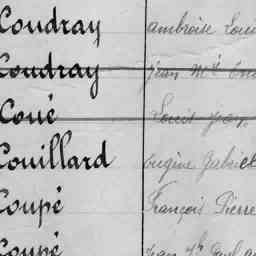 Coudray ambroise Loui
Coudray jean Mie
Coué Louis jean
Couillard Eugène Gabriel
Coupé François Pierre
Coupé jean